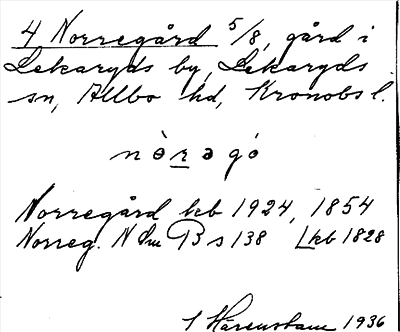 4 Norregård 5/8, gård i
Lekaryds by, Lekaryds
sn, Allbo hd, Kronobs l.
nòrəgó
Norregård kb 1924, 1854
Norreg. N Sm B s 138 Lkb 1828
1936